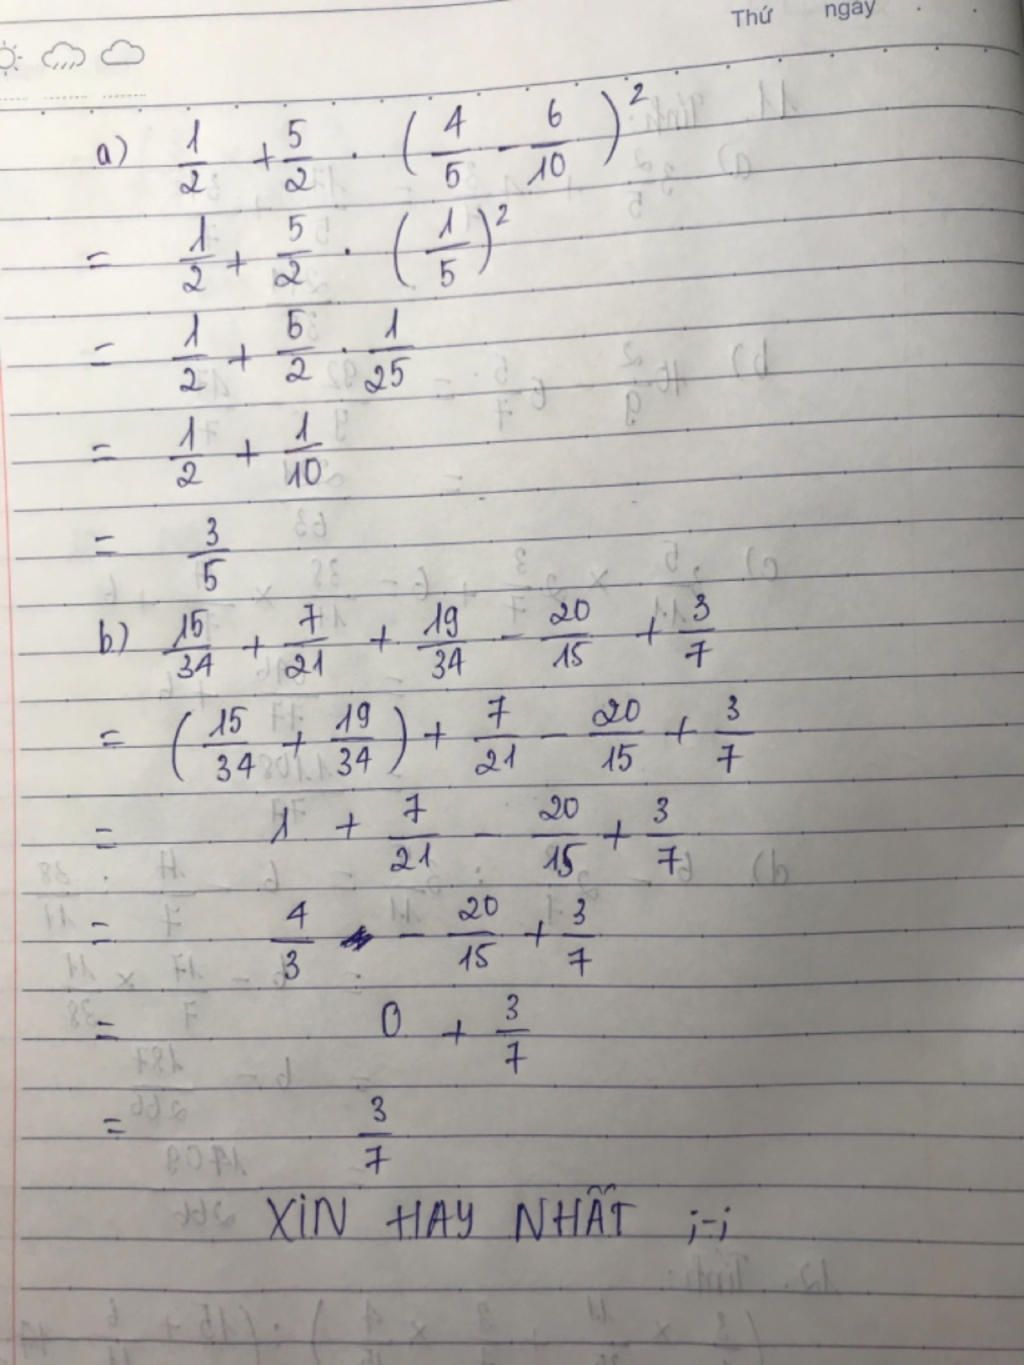 Thứ ngày
a) 1/2 + 5/2 . (4/5 - 6/10)²
= 1/2 + 5/2 . (1/5)²
= 1/2 + 5/2 . 1/25
= 1/2 + 1/10
= 3/5
b) 15/34 + 7/21 + 19/34 - 20/15 + 3/7
= (15/34 + 19/34) + 7/21 - 20/15 + 3/7
= 1 + 7/21 - 20/15 + 3/7
= 4/3 - 20/15 + 3/7
= 0 + 3/7
= 3/7
XIN HAY NHẤT ;-;